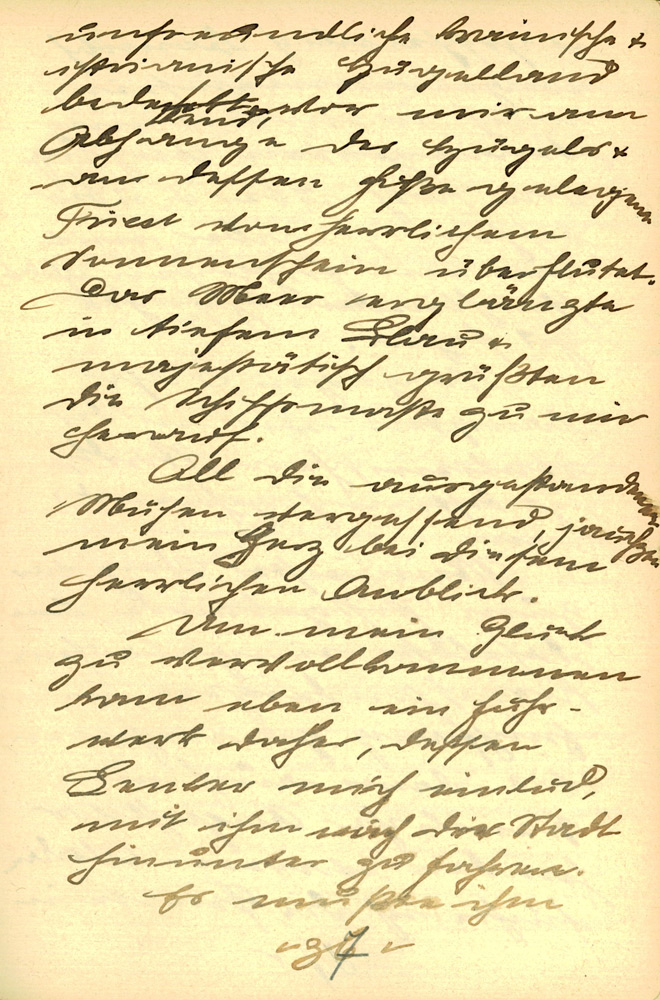 unfreundliche krainische &
istrianische Hügelland
bedeckte, vor mir am
Abhange des Hügels &
an dessen Füße gelegene
Triest von herrlichem
Sonnenschein überflutet.
Das Meer erglänzte
in tiefem Blau &
majestätisch grüßten
die Schiffsmaste zu mir
herauf.
All die ausgestandenen
Mühen vergessend, jauchzte
mein Herz bei diesem
herrlichen Anblick.
Um mein Glück
zu vervollkommnen
kam eben ein Fuhr-
werk daher, dessen
Lenker mich einlud,
mit ihm nach der Stadt
hinunter zu fahren.
Er mußte ihm
7